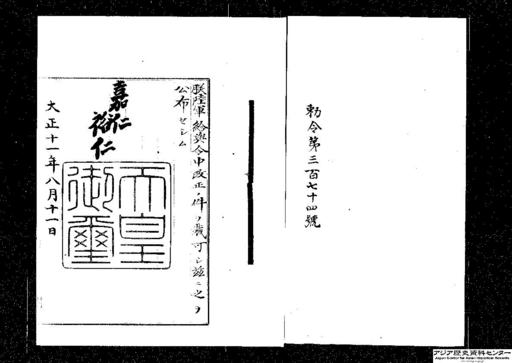 勅令第三百七十四號
朕陸軍給與令中改正ノ件ヲ裁可シ茲ニ之ヲ
公布セシム
嘉仁
裕仁
天皇
御璽
大正十一年八月十一日
アジア歴史資料センター
Japan Center for Asian Historical Records